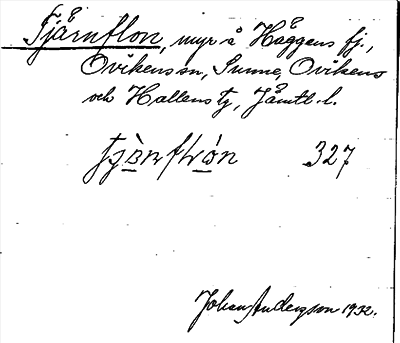 Tjårnflon, myr å Häggens fj.,
Ovikens sn, Sunne, Ovikens
och Hallens tg, Jämtl. l.
327
Johan Anderson 1932.